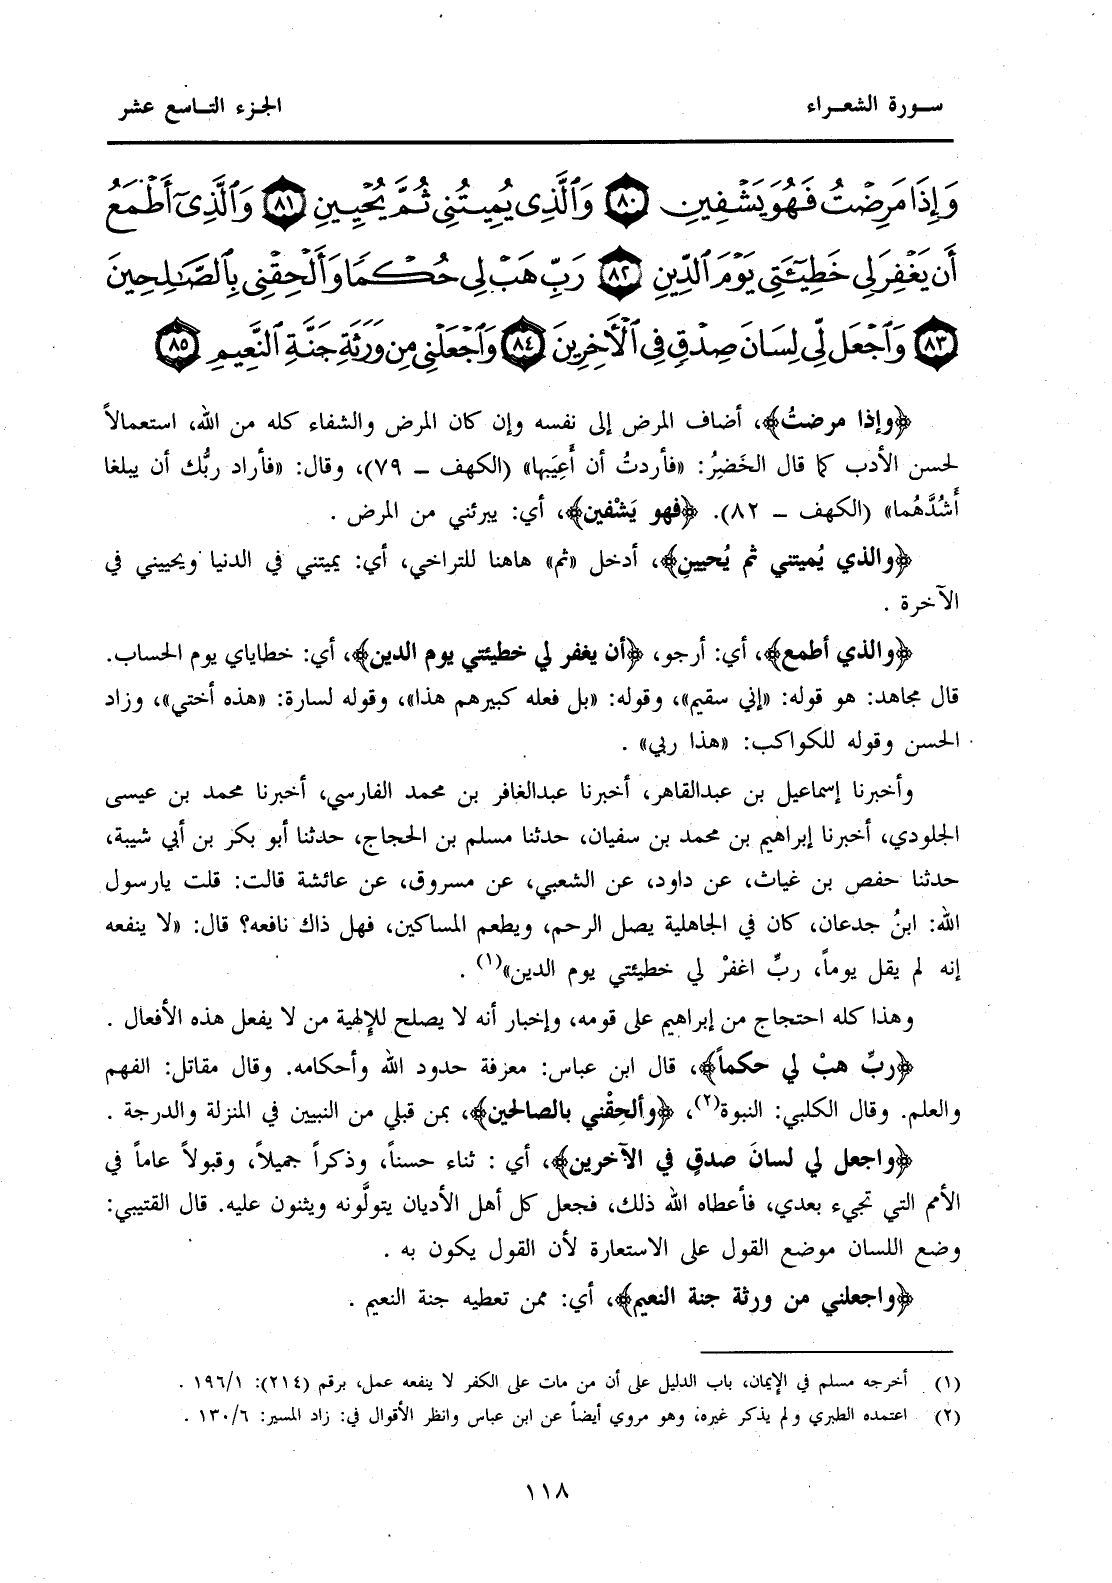 سورة الشعراء
الجزء التاسع عشر
وَإِذَا مَرِضْتُ فَهُوَ يَشْفِينِ ٨٠ وَٱلَّذِى يُمِيتُنِى ثُمَّ يُحْيِينِ ٨١ وَٱلَّذِىٓ أَطْمَعُ
أَن يَغْفِرَ لِى خَطِيٓـَٔتِى يَوْمَ ٱلدِّينِ ٨٢ رَبِّ هَبْ لِى حُكْمًا وَأَلْحِقْنِى بِٱلصَّـٰلِحِينَ
٨٣ وَٱجْعَل لِّى لِسَانَ صِدْقٍ فِى ٱلْأَخِرِينَ ٨٤ وَٱجْعَلْنِى مِن وَرَثَةِ جَنَّةِ ٱلنَّعِيمِ ٨٥
﴿وإذا مرضتُ﴾، أضاف المرض إلى نفسه وإن كان المرض والشفاء كله من الله، استعمالاً
لحسن الأدب كما قال الخَضِرُ: «فأردتُ أن أَعِيَبها» (الكهف ـ ٧٩)، وقال: «فأراد ربُّك أن يبلغا
أَشُدَّهُما» (الكهف ـ ٨٢). ﴿فهو يَشْفين﴾، أي: يبرئني من المرض .
﴿والذي يُميتني ثم يُحيين﴾، أدخل «ثم» هاهنا للتراخي، أي: يميتني في الدنيا ويحييني في
الآخرة .
﴿والذي أطمع﴾، أي: أرجو، ﴿أن يغفر لي خطيئتي يوم الدين﴾، أي: خطاياي يوم الحساب.
قال مجاهد: هو قوله: «إني سقيم»، وقوله: «بل فعله كبيرهم هذا»، وقوله لسارة: «هذه أختي»، وزاد
الحسن وقوله للكواكب: «هذا ربي» .
وأخبرنا إسماعيل بن عبدالقاهر، أخبرنا عبدالغافر بن محمد الفارسي، أخبرنا محمد بن عيسى
الجلودي، أخبرنا إبراهيم بن محمد بن سفيان، حدثنا مسلم بن الحجاج، حدثنا أبو بكر بن أبي شيبة،
حدثنا حفص بن غياث، عن داود، عن الشعبي، عن مسروق، عن عائشة قالت: قلت يارسول
الله: ابنُ جدعان، كان في الجاهلية يصل الرحم، ويطعم المساكين، فهل ذاك نافعه؟ قال: «لا ينفعه
إنه لم يقل يوماً، ربِّ اغفرْ لي خطيئتي يوم الدين»(١) .
وهذا كله احتجاج من إبراهيم على قومه، وإخبار أنه لا يصلح للإلهية من لا يفعل هذه الأفعال .
﴿ربِّ هبْ لي حكماً﴾، قال ابن عباس: معرفة حدود الله وأحكامه. وقال مقاتل: الفهم
والعلم. وقال الكلبي: النبوة(٢)، ﴿وألحِقْني بالصالحين﴾، بمن قبلي من النبيين في المنزلة والدرجة .
﴿واجعل لي لسانَ صدقٍ في الآخرين﴾، أي : ثناء حسناً، وذكراً جميلاً، وقبولاً عاماً في
الأمم التي تجيء بعدي، فأعطاه الله ذلك، فجعل كل أهل الأديان يتولَّونه ويثنون عليه. قال القتيبي:
وضع اللسان موضع القول على الاستعارة لأن القول يكون به .
﴿واجعلني من ورثة جنة النعيم﴾، أي: ممن تعطيه جنة النعيم .
(١) أخرجه مسلم في الإيمان، باب الدليل على أن من مات على الكفر لا ينفعه عمل، برقم (٢١٤): ١٩٦/١ .
(٢) اعتمده الطبري ولم يذكر غيره، وهو مروي أيضاً عن ابن عباس وانظر الأقوال في: زاد المسير: ١٣٠/٦ .
١١٨